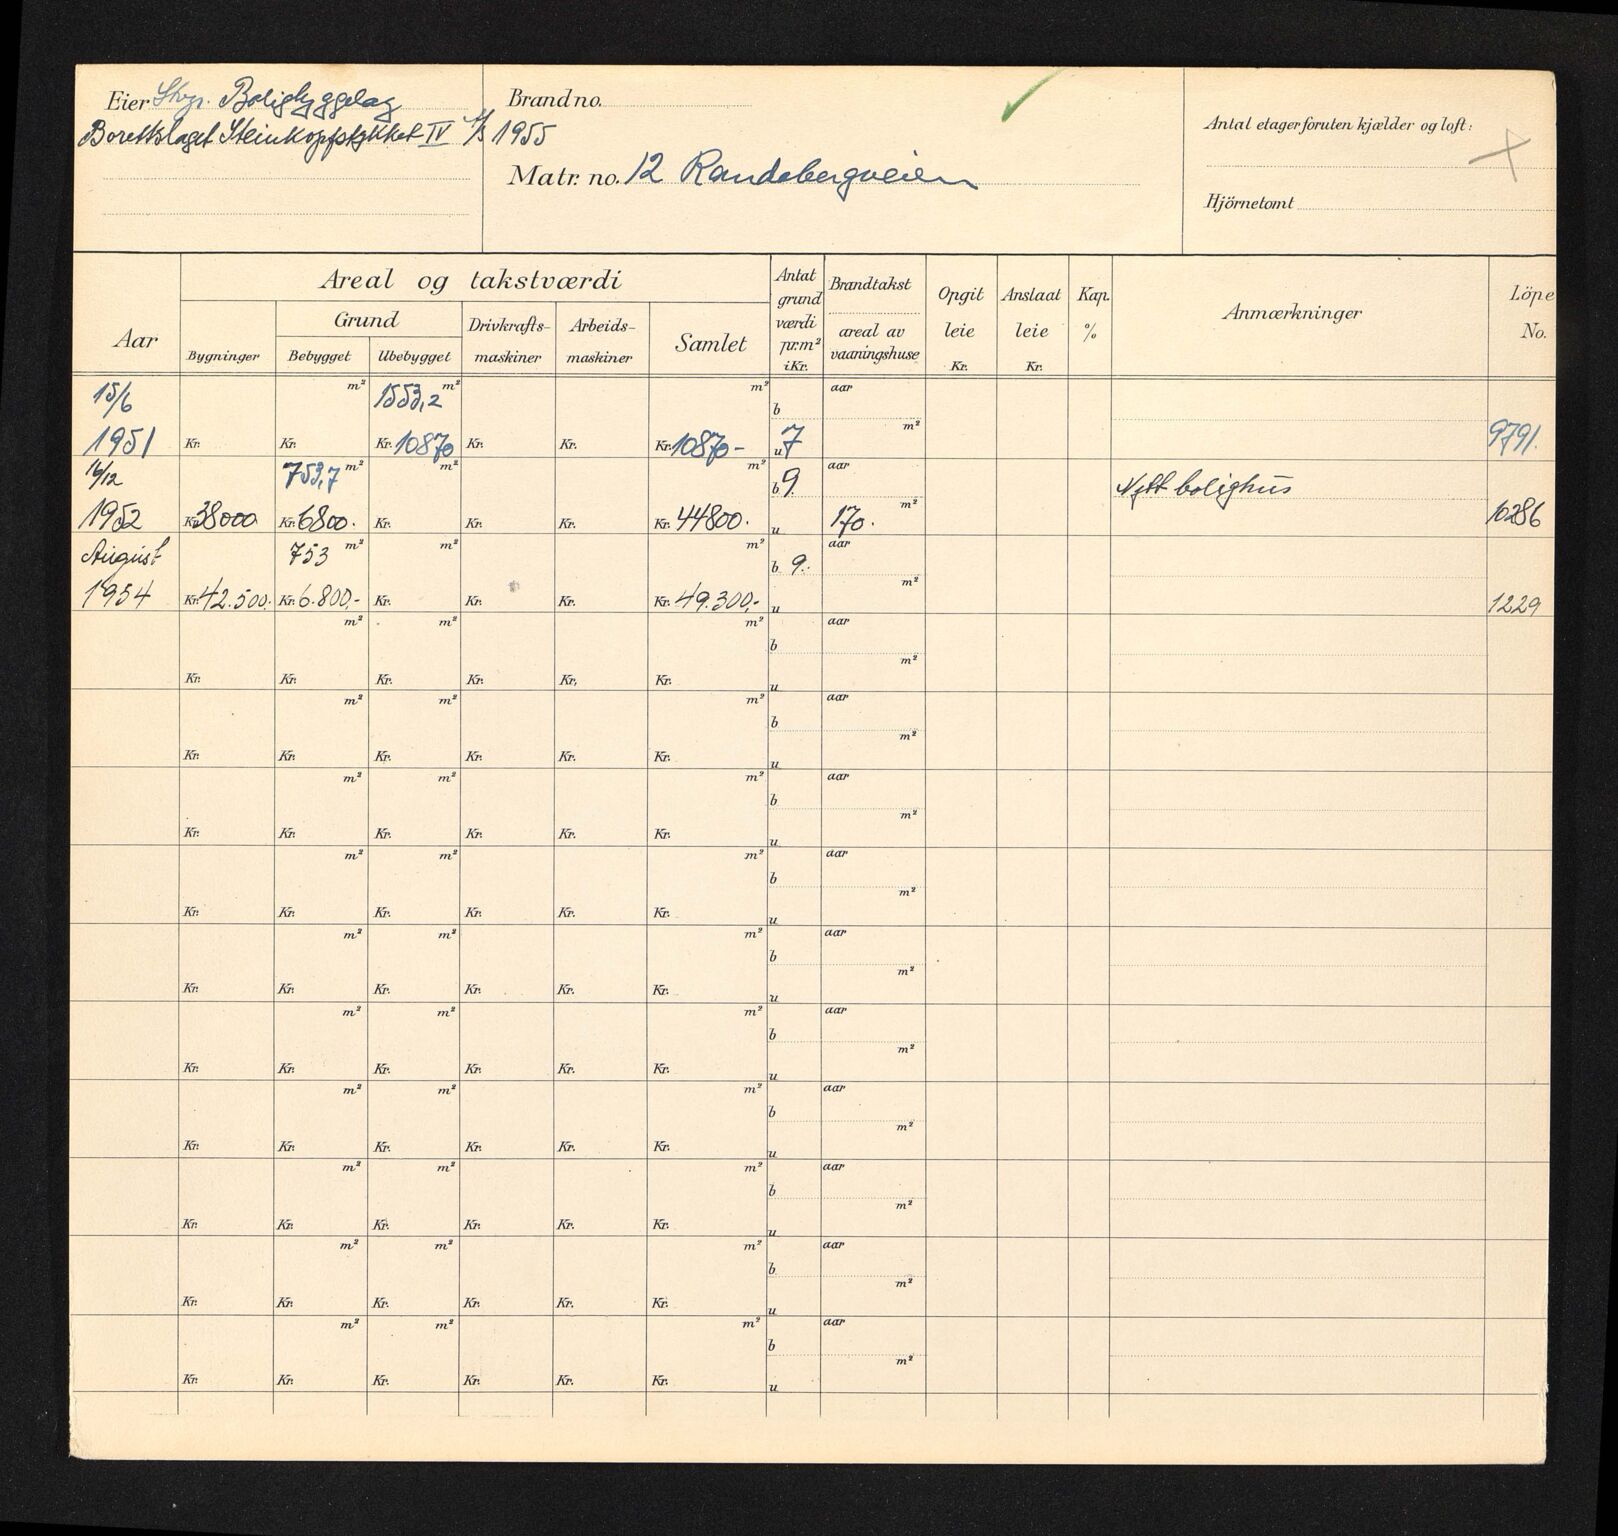 Eier Stvgr. Boligbyggelag
Borettslaget Steinkopfstykket IV 1/5 1955
Brand no.
Matr. no. 12 Randabergveien
Antal etager foruten kjælder og loft:
Hjörnetomt
Areal og takstværdi
Aar
Bygninger
Grund
Bebygget
Ubebygget
Drivkrafts-
maskiner
Arbeids-
maskiner
Samlet
Antat
grund
værdi
pr. m²
i Kr.
Brandtakst
areal av
vaaningshuse
Opgit
leie
Kr.
Anslaat
leie
Kr.
Kap.
%
Anmærkninger
Löpe
No.
15/6 m² 1553,2 m² m² b aar
m²
1951 Kr. Kr. Kr. 10870 Kr. Kr. Kr. 10870- u 7 9791.
16/12 753,7 m² m² m² b 9. aar Nytt bolighus
m²
1952 Kr. 38000 Kr. 6800. Kr. Kr. Kr. Kr. 44800. u 170. 10286
August 753 m² m² m² b 9.- aar
m²
1954 Kr. 42.500. Kr. 6.800,- Kr. Kr. Kr. Kr. 49.300,- u 1229
m² m² m² b aar
m²
Kr. Kr. Kr. Kr. Kr. Kr. u
m² m² m² b aar
m²
Kr. Kr. Kr. Kr. Kr. Kr. u
m² m² m² b aar
m²
Kr. Kr. Kr. Kr. Kr. Kr. u
m² m² m² b aar
m²
Kr. Kr. Kr. Kr. Kr. Kr. u
m² m² m² b aar
m²
Kr. Kr. Kr. Kr. Kr. Kr. u
m² m² m² b aar
m²
Kr. Kr. Kr. Kr. Kr. Kr. u
m² m² m² b aar
m²
Kr. Kr. Kr. Kr. Kr. Kr. u
m² m² m² b aar
m²
Kr. Kr. Kr. Kr. Kr. Kr. u
m² m² m² b aar
m²
Kr. Kr. Kr. Kr. Kr. Kr. u
m² m² m² b aar
m²
Kr. Kr. Kr. Kr. Kr. Kr. u